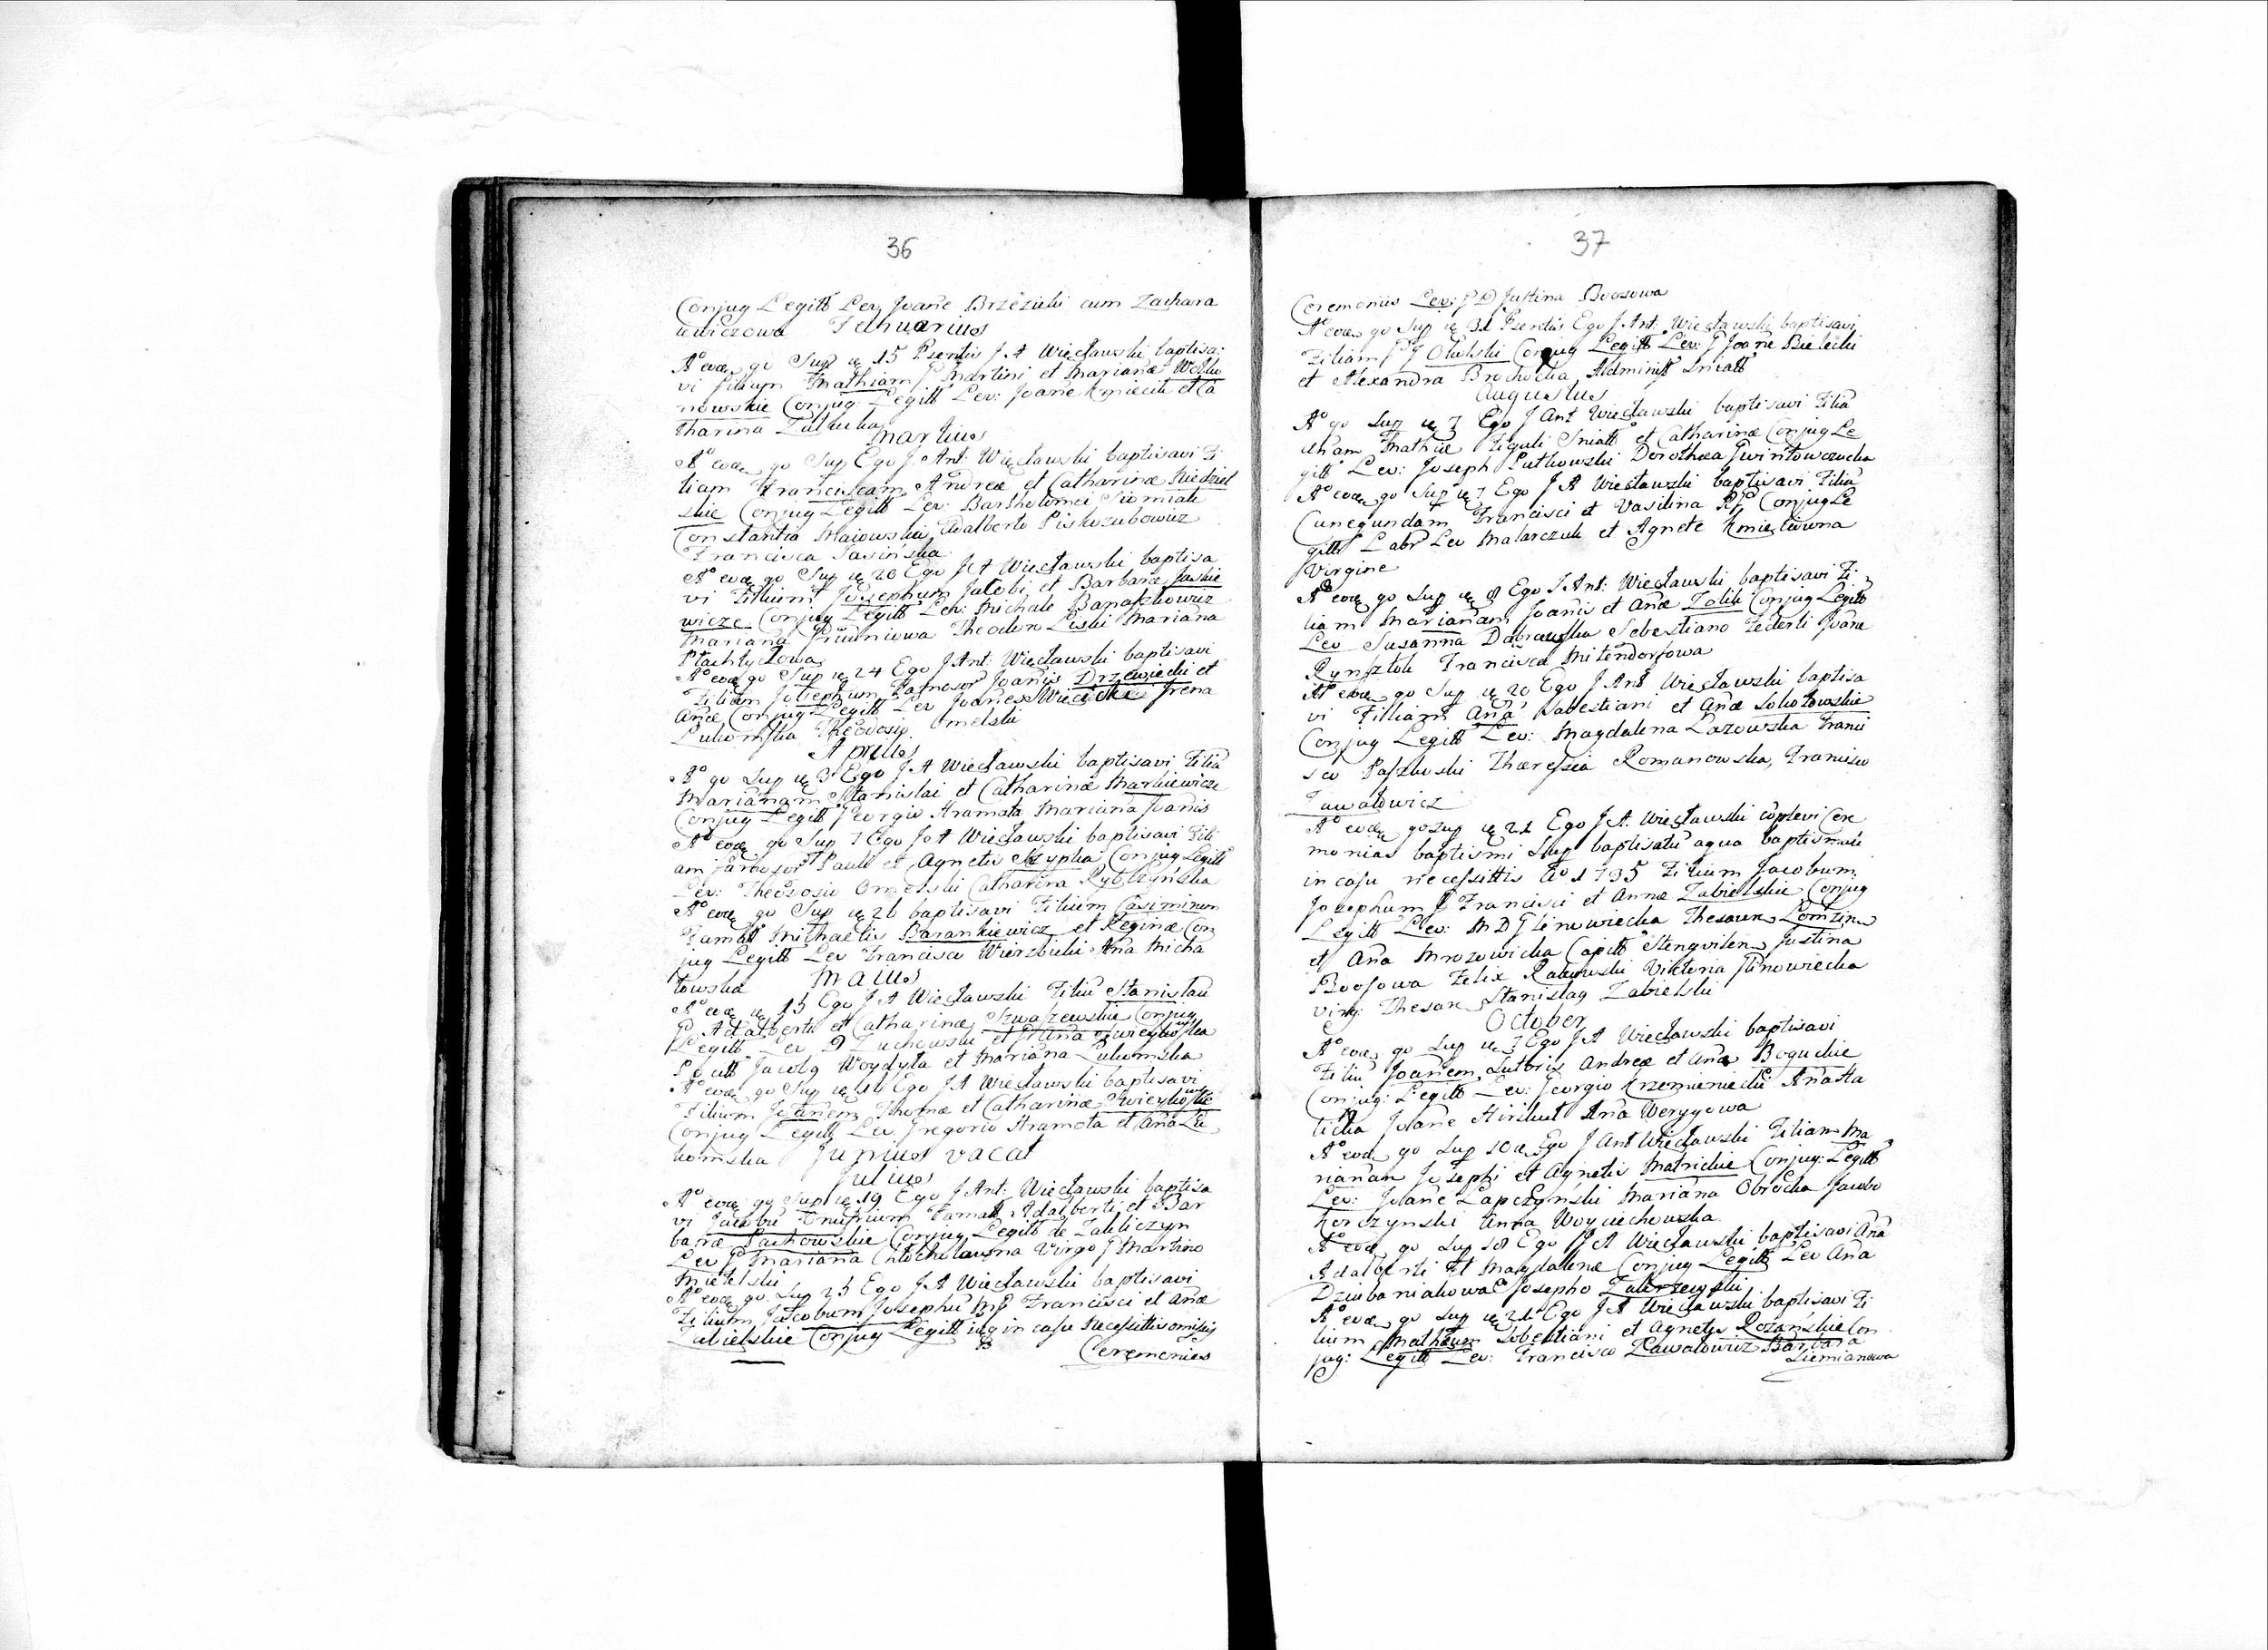 36
Conjug Legitt Lev Joane Brzezicki cum Zachara
iewiczowa Februarius
A° eodē qo Sup ię 15 Psentis J A Więcławski baptisa:
vi filium Mathiam J Martini et Marianæ Wolko
nowskie Conjug: Legitt Lev: Joane Kmiecik et Ca
tharina
Martius
A° eodē qo Sup Ego J. Ant: Więcławski baptisavi Fi
liam Franciscam Andreæ et Catharinæ Niedziel
skie Conjug Legitt Lev: Bartholomei Siomiak
Constantia Maiowska, Adalberto Piskozubowicz
Francisca Jasińska
A° eodē qo Sup ię 20 Ego J A Więcławski baptisa
vi Filium Josephum Jacobi et Barbaræ Jaskie
wicze Conjug Legitt Lev: Michale Banaszkowicz
Mariana Theodor Liski Mariana
A° eodē qo Sup ię 24 Ego J Ant: Więcławski baptisavi
Filium Josephum Joanis Drzewiecki et
Anæ Conjug Legitt Lev Joanes Wiecicki Irena
Lukomska Theodosio Omelski
Aprilis
A° qo Sup ię 3 Ego J A Więcławski baptisavi Filiā
Marianam Stanislai et Catharinæ Markiewicze
Conjug Legitt Georgio Aramota Mariana Joanis
A° eodē qo Sup 7 Ego J A Więcławski baptisavi Fili
am Pauli et Agnetis Skrypka Conjug Legitt
Lev: Theodosio Omelski Catharina Rybczyńska
A° eodē qo Sup ię 26 baptisavi Filium Casimirum
Famatt Michaelis Barankiewicz et Reginæ Con
jug Legitt Lev Francisco Wierzbicki Ana Micha
łowska Maius
A° eodē ię 15 Ego J A Więcławski Filiū Stanislaū
P Adalberti et Catharinæ Szwaszewskie Conjug
Legitt Lev D Zuchowski et Ana
Jacobo Woydyła et Mariana Lukomska
A° eodē qo Sup ię 16 Ego J A Więcławski baptisavi
Filium Joanem Thomæ et Catharinæ
Conjug Legitt Lev Gregorio Aramota et Ana Lu
komska Junius vacat
Julius
A° eodē qo Sup ię 19 Ego J Ant: Więcławski baptisa
vi Jacobū Onufrium Famatt Adalberti et Bar
baræ Pachowskie Conjug Legitt de Zakliczyn
Lev J Mariana Virgo J Martino
Mietelski
A° eodē qo Sup 25 Ego J A Więcławski baptisavi
Filium Jacobum Josephū Francisci et Anæ
Zabielskie Conjug Legitt in casu Necessittis omissis
Ceremonies
37
Ceremoniis Lev: J D Justina Boosowa
A° eodē qo Sup ię 31 Psentis Ego J. Ant: Więcławski baptisavi
Filiam Okolski Conjug Legitt Lev: J Joane Bielecki
et Alexandra Brochocka Administ Sniatt
Augustus
A° qo Sup ię 7 Ego J Ant Więcławski baptisavi Filiā
Mathiæ Figuli Sniatt et Catharinæ Conjug Le
gitt Lev: Joseph Putkowski Dorothea Gwintowczocka
A° eodē qo Sup ię 7 Ego J A Więcławski baptisavi Filiā
Cunegundam Francisci et Vasilina Conjug Le
gitt Labr Lev Malarczuk et Agnete Kmieciówna
Virgine
A° eodē qo Sup ię 8 Ego J Ant: Więcławski baptisavi Fi
liam Marianam Joanis et Anæ Zolik Conjug Legitt
Lev Susanna Dąbrowska Sebestiano Federli Joane
Rynsztok Francisca Mitendorfowa
A° eodē qo Sup ię 20 Ego J Ant Więcławski baptisa
vi Filliam Ana Sabestiani et Anæ Sokołowskie
Conjug Legitt Lev: Magdalena Lazowska Franci
sco Paszkoski Thæresia Romanowska, Francisco
Zawałowicz
A° eodē qo Sup ię 21 Ego J A. Więcławski coplevi Cere
monias baptismi Sup baptisatū aqua baptismali
in casu necessittis A° 1735 Filium Jacobum
Josephum J Francisci et Annæ Zabielskie Conjug
Legitt Lev: M D Glinowiecka Thesaur Lomzin
et Ana Mrozowicka Capitt Stengvilen Justina
Boosowa Felix Rakowski Viktoria Glinowiecka
virg: Thesau Stanislao Zabielski
October
A° eodē qo Sup ię 7 Ego J A Więcławski baptisavi
Filiū Joanem Sutoris Andreæ et Anæ Boguckie
Conjug: Legitt Lev: Georgio Krzemieniecki Anasta
Joane Hirskut Ana Werygowa
A° eodē qo Sup 10 ię Ego J Ant Więcławski Filiam Ma
rianam Josephi et Agnetis Matrickie Conjug: Legitt
Lev: Joane Lapczyński Mariana Obrocka Jacobo
Korczynski Anna Woyciechowska
A° eodē qo Sup 18 Ego J A Więcławski baptisavi Anā
Adalberti et Magdalenæ Conjug Legitt Lev Ana
Dziubaniakowa Josepho Zakrzewski
A° eodē qo Sup ię 21 Ego J A Więcławski baptisavi Fi
lium Matheum Sobestiani et Agnetis Rożańskie Con
jug: Legitt Lev: Francisco Zawałowicz Barbara
Ziemianowa